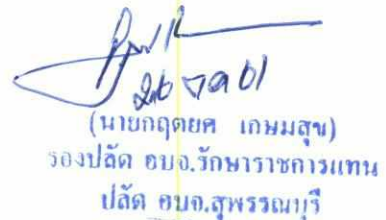 (นายกฤตยศ เกษมสุข)
รองปลัด อบจ.รักษาราชการแทน
ปลัด อบจ.สุพรรณบุรี